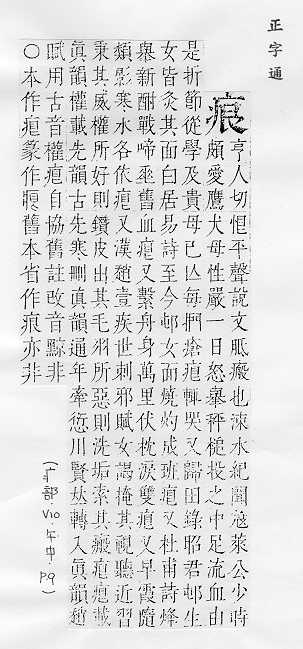 正字通
痕 亨人切佷平聲說文胝瘢也涑水紀聞寇萊公少時
頗愛鷹犬母性嚴一日怒舉秤槌投之中足流血由
是折節從學及貴母已亾每捫瘡痕輒哭又歸田錄昭君邨生
女皆灸其面白居易詩至今邨女面燒灼成班痕又杜甫詩烽
舉新酣戰啼垂舊血痕又繫舟身萬里伏枕淚雙痕又早霞隨
類影寒水各依痕又漢趙壹疾世刺邪賦女謁掩其視聽近習
秉其威權所好則鑽皮出其毛羽所惡則洗垢索其瘢痕痕載
眞韻權載先韻古先寒刪眞韻通年牽愆川賢𠀤轉入眞韻趙
賦用古音權痕自協舊註改音黥非
〇本作痕篆作舊本省作痕亦非
(疒部 V10.午中.P9)